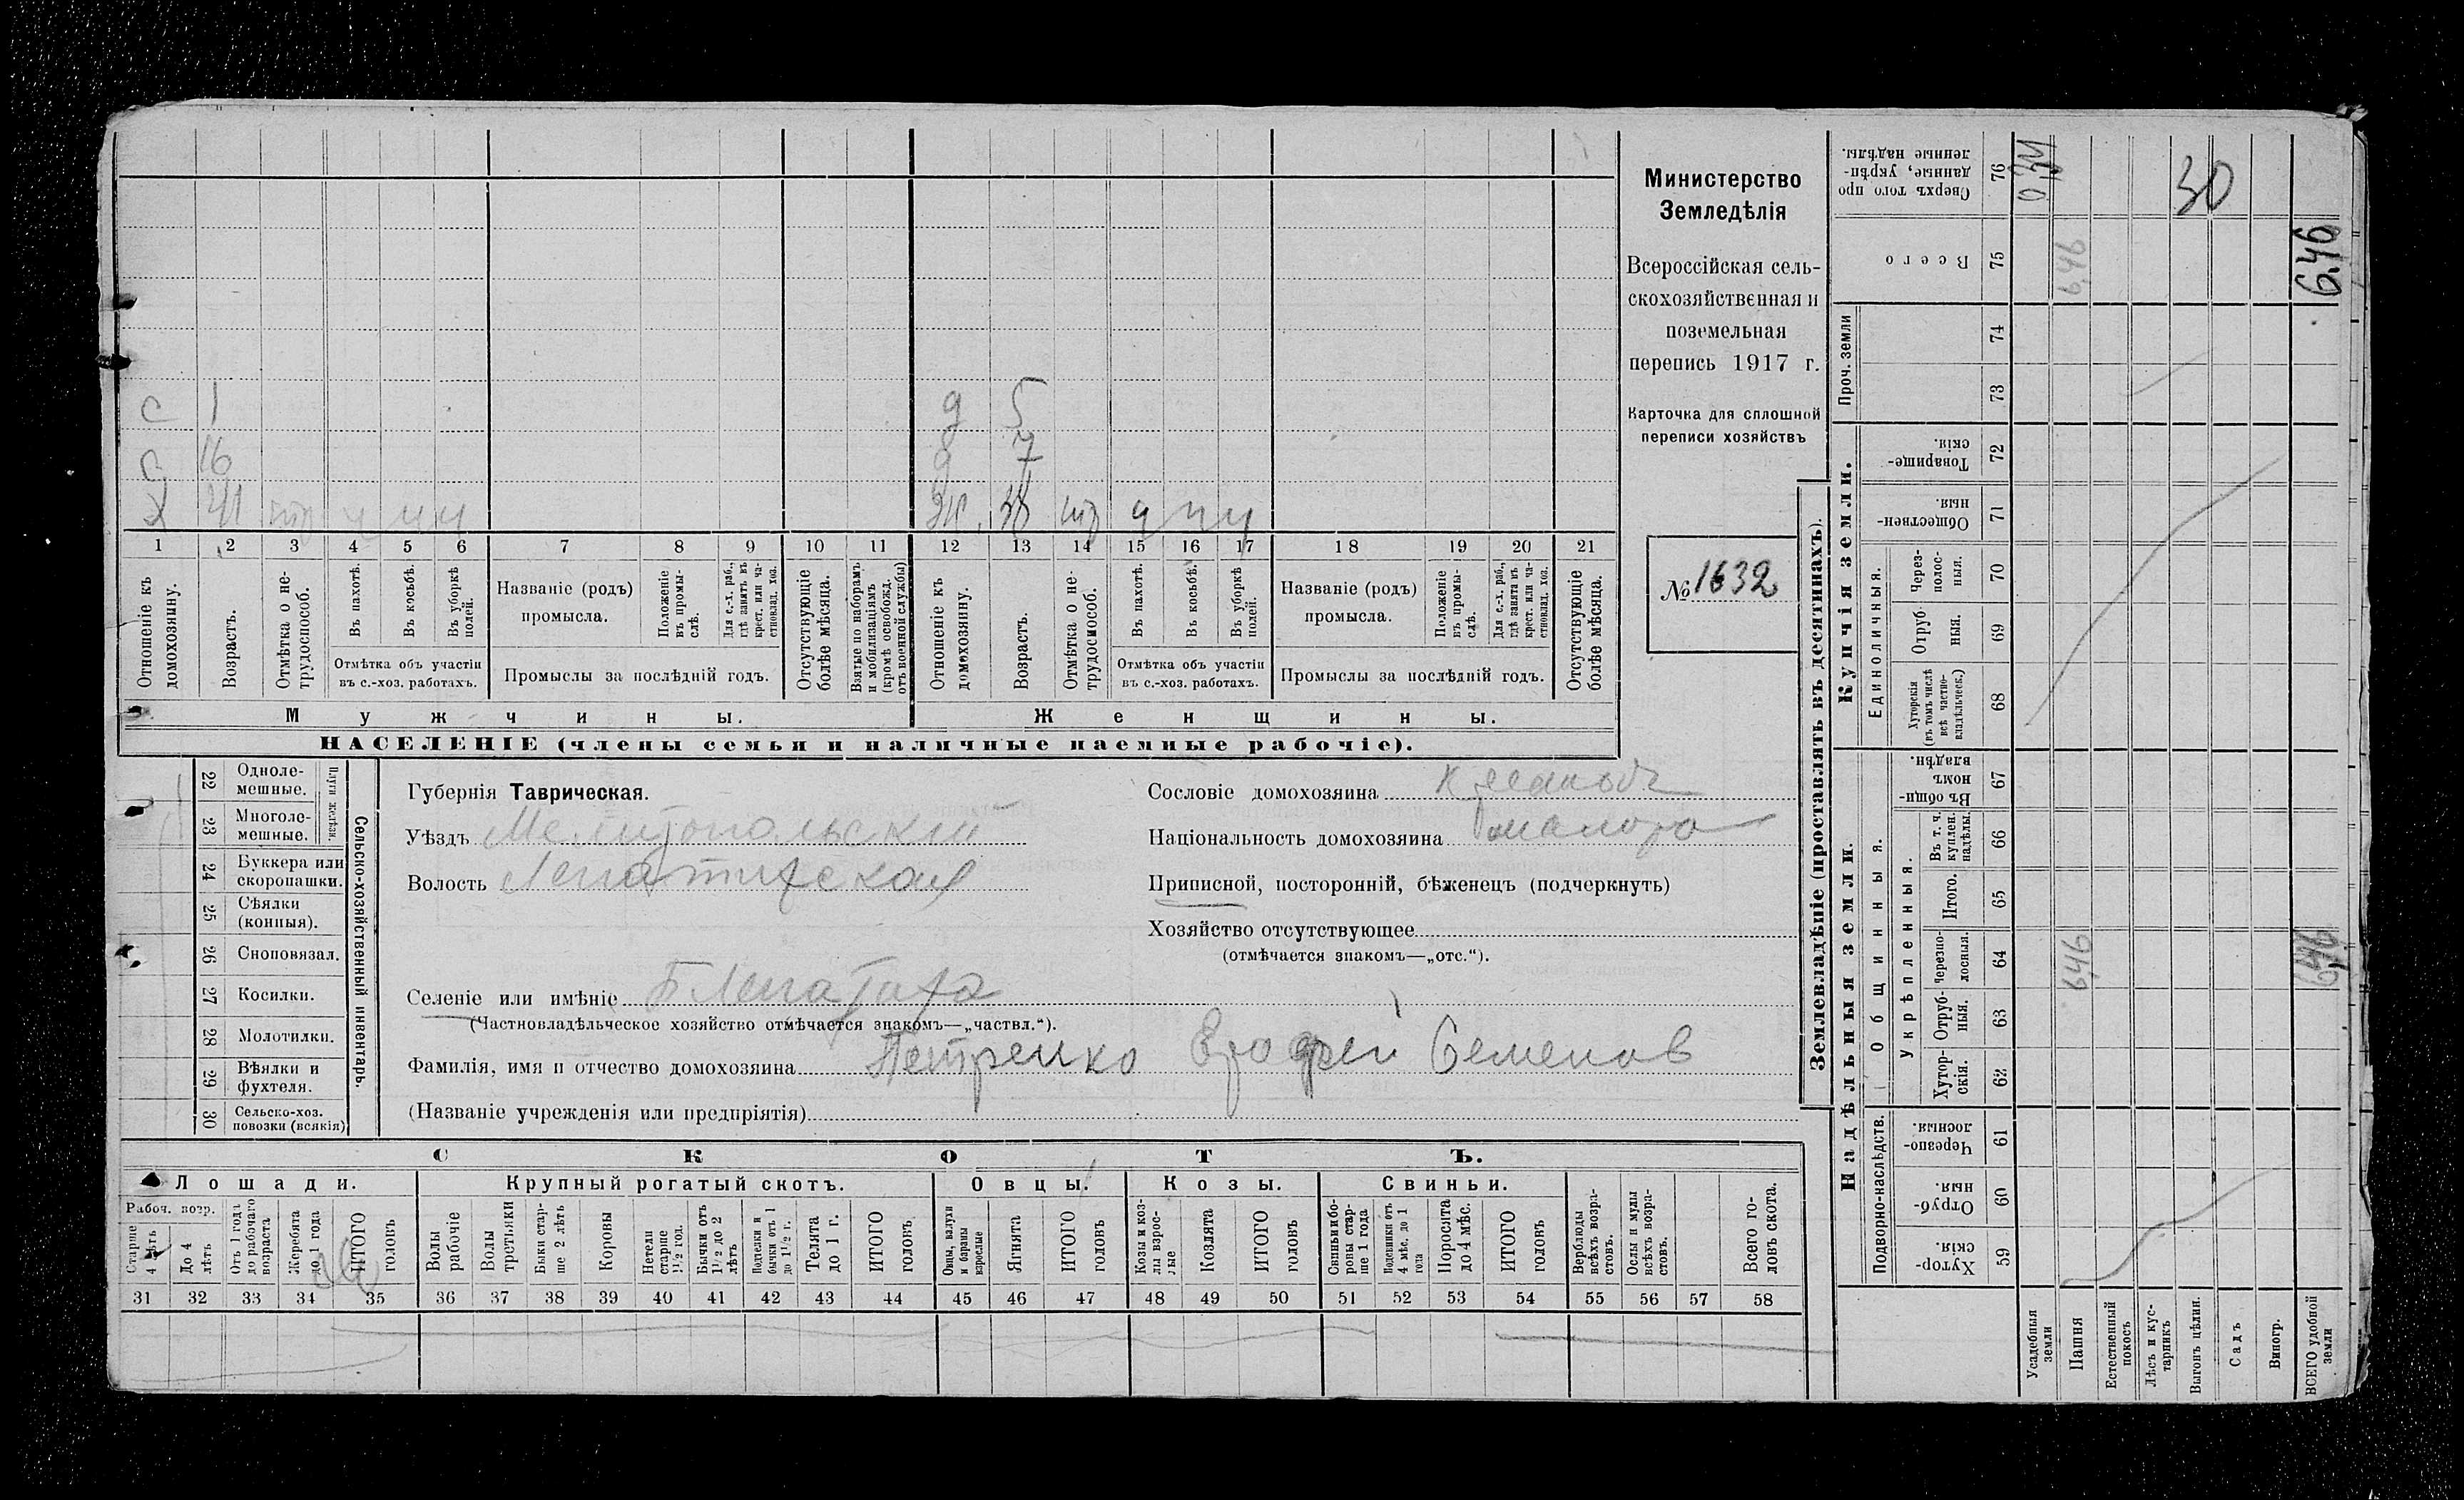 Министерство
Земледѣлія
Всероссійская сель-
скохозяйственная и
поземельная
перепись 1917 г.
Карточка для сплошной
переписи хозяйствъ
№ 1632
с 1 д 5
с 16 д 7
х 41 ж
1 2 3 4 5 6 7 8 9 10 11 12 13 14 15 16 17 18 19 20 21
Отношеніе къ домохозяину.
Возрастъ.
Отмѣтка о не-трудоспособ.
Въ пахотѣ.
Въ косьбѣ.
Въ уборкѣ полей.
Отмѣтка объ участіи
въ с.-хоз. работахъ.
Названіе (родъ)
промысла.
Положеніе въ промы-слѣ.
Для с.-х. раб., гдѣ занятъ въ крест. или ча-стновлад. хоз.
Промыслы за послѣдній годъ.
Отсутствующіе болѣе мѣсяца.
Взятые по наборамъ и мобилизаціямъ (кромѣ освобожд. отъ военной службы)
Отношеніе къ домохозяину.
Возрастъ.
Отмѣтка о не-трудоспособ.
Въ пахотѣ.
Въ косьбѣ.
Въ уборкѣ полей.
Отмѣтка объ участіи
въ с.-хоз. работахъ.
Названіе (родъ)
промысла.
Положеніе въ промы-слѣ.
Для с.-х. раб., гдѣ занята въ крест. или ча-стновлад. хоз.
Промыслы за послѣдній годъ.
Отсутствующіе болѣе мѣсяца.
Мужчины. Женщины.
НАСЕЛЕНІЕ (члены семьи и наличные наемные рабочіе).
22 Одноле-мешные.
23 Многоле-мешные.
Плуги желѣзн.
24 Буккера или скоропашки.
25 Сѣялки (конныя).
26 Сноповязал.
27 Косилки.
28 Молотилки.
29 Вѣялки и фухтеля.
30 Сельско-хоз. повозки (всякія)
Сельско-хозяйственный инвентарь.
Губернія Таврическая.
Уѣздъ Мелитопольскій
Волость
Сословіе домохозяина
Національность домохозяина
Приписной, посторонній, бѣженецъ (подчеркнуть)
Хозяйство отсутствующее
(отмѣчается знакомъ—„отс.“).
Селеніе или имѣніе
(Частновладѣльческое хозяйство отмѣчается знакомъ—„частвл.“).
Фамилія, имя и отчество домохозяина Петренко Ерофей Семенов
(Названіе учрежденія или предпріятія)
СКОТЪ.
Лошади. Крупный рогатый скотъ. Овцы. Козы. Свиньи.
Рабоч. возр.
Старше 4 лѣтъ
До 4 лѣтъ
Отъ 1 года до рабочаго возраста
Жеребята до 1 года
ИТОГО головъ
Волы рабочіе
Волы третьяки
Быки стар-ше 2 лѣтъ
Коровы
Нетели старше 1½ год.
Бычки отъ 1½ до 2 лѣтъ
Подтелки и бычки отъ 1 до 1½ г.
Телята до 1 г.
ИТОГО головъ
Овцы, валухи и бараны взрослые
Ягнята
ИТОГО головъ
Козы и коз-лы взрос-лые
Козлята
ИТОГО головъ
Свиньи и бо-ровы стар-ше 1 года
Подсвинки отъ 4 мѣс. до 1 года
Поросята до 4 мѣс.
ИТОГО головъ
Верблюды всѣхъ возра-стовъ.
Ослы и мулы всѣхъ возра-стовъ.
Всего го-ловъ скота.
31 32 33 34 35 36 37 38 39 40 41 42 43 44 45 46 47 48 49 50 51 52 53 54 55 56 57 58
Землевладѣніе (проставлять въ десятинахъ).
Сверхъ того про-данные, укрѣп-ленные надѣлы. 76 0,34 30
Всего 75 6,46 6,46
Проч. земли 74
73
Купчія земли.
Товарище-скія. 72
Обществен-ныя. 71
Единоличныя.
Через-полос-ныя. 70
Отруб-ныя. 69
Хуторскія (въ томъ числѣ всѣ частно-владѣльческ.) 68
Надѣльныя земли.
Общинныя.
Въ общи-номъ владѣн. 67
Укрѣпленныя.
Въ т. ч. куплен. надѣлы. 66
Итого. 65
Черезпо-лосныя. 64 6,46 6,46
Отруб-ныя. 63
Хутор-скія. 62
Подворно-наслѣдств.
Черезпо-лосныя. 61
Отруб-ныя. 60
Хутор-скія. 59
Усадебныя земли
Пашня
Естественный покосъ
Лѣсъ и кус-тарникъ
Выгонъ цѣлин.
Садъ
Виногр.
ВСЕГО удобной земли